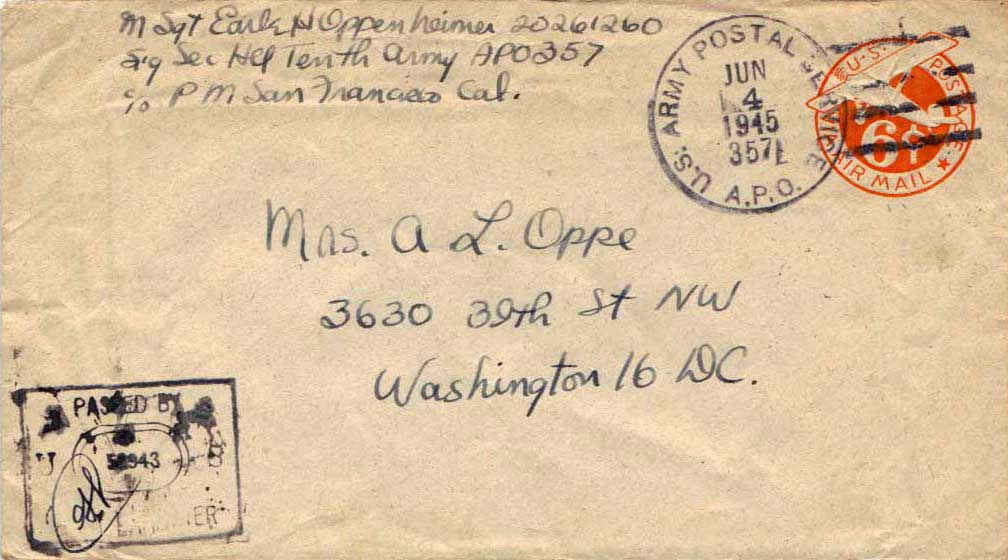 M Sgt Earle H Oppenheimer 20261260
Sig Sec Hq Tenth Army APO357
c/o P M San Francisco Cal.
U.S. ARMY POSTAL SERVICE
JUN
4
1945
357
A.P.O.
U.S. POSTAGE
6¢
AIR MAIL
Mrs. A L. Oppe
3630 39th St NW
Washington 16 DC.
PASSED BY
U S
EXAMINER